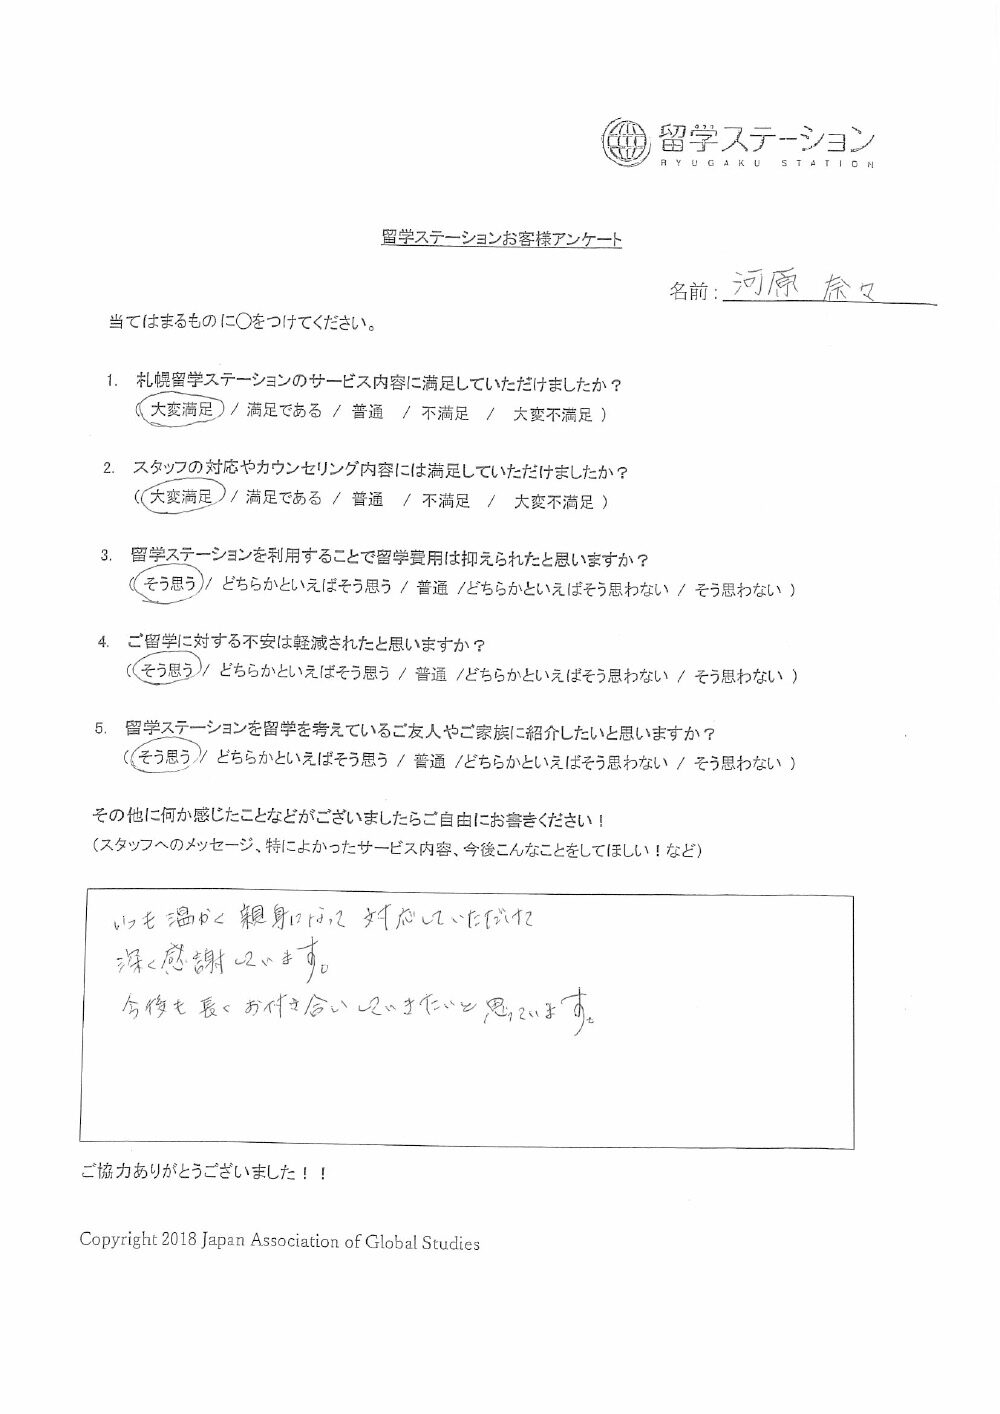 留学ステーション
RYUGAKU STATION
留学ステーションお客様アンケート
名前: 河原 奈々
当てはまるものに〇をつけてください。
1. 札幌留学ステーションのサービス内容に満足していただけましたか？
( 大変満足 / 満足である / 普通 / 不満足 / 大変不満足 )
2. スタッフの対応やカウンセリング内容には満足していただけましたか？
( 大変満足 / 満足である / 普通 / 不満足 / 大変不満足 )
3. 留学ステーションを利用することで留学費用は抑えられたと思いますか？
( そう思う / どちらかといえばそう思う / 普通 /どちらかといえばそう思わない / そう思わない )
4. ご留学に対する不安は軽減されたと思いますか？
( そう思う / どちらかといえばそう思う / 普通 /どちらかといえばそう思わない / そう思わない )
5. 留学ステーションを留学を考えているご友人やご家族に紹介したいと思いますか？
( そう思う / どちらかといえばそう思う / 普通 /どちらかといえばそう思わない / そう思わない )
その他に何か感じたことなどがございましたらご自由にお書きください！
（スタッフへのメッセージ、特によかったサービス内容、今後こんなことをしてほしい！など）
いつも温かく親身になって対応していただけて
深く感謝しています。
今後も長くお付き合いしていきたいと思っています。
ご協力ありがとうございました！！
Copyright 2018 Japan Association of Global Studies